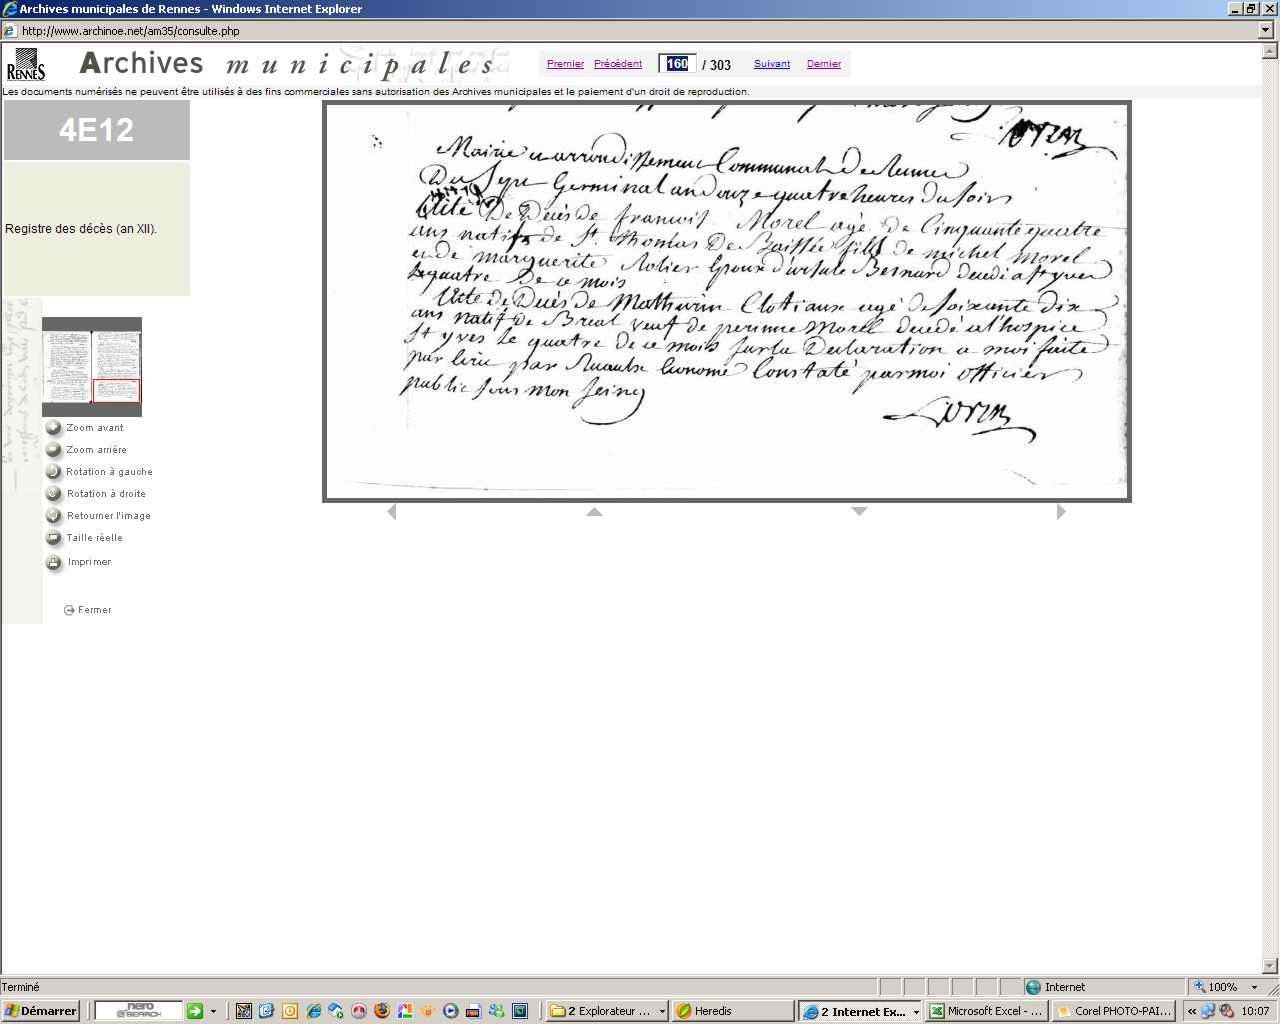 Archives municipales de Rennes - Windows Internet Explorer
http://www.archinoe.net/am35/consulte.php
RENNES
Archives municipales
Premier Précédent 160 / 303 Suivant Dernier
Les documents numérisés ne peuvent être utilisés à des fins commerciales sans autorisation des Archives municipales et le paiement d'un droit de reproduction.
4E12
Registre des décès (an XII).
Mairie et arrondissement Communal de Rennes
Du Sept Germinal an Douze quatre heures du soir
Acte De Decès de francois Morel agé de Cinquante quatre
ans natif de St. thomas De Baillée fils de michel Morel
et de marguerite Rolier Epoux d'ursule Bernard decedé a St yves
le quatre De ce mois
Acte de Decès de Mathurin Clotiaux agé de Soixante dix
ans natif de Breal veuf de perinne Morel decedé a l'hospice
St yves le quatre de ce mois sur la Declaration a moi faite
par Econome Constaté par moi officier
public sous mon seing
Zoom avant
Zoom arrière
Rotation à gauche
Rotation à droite
Retourner l'image
Taille réelle
Imprimer
Fermer
Terminé
Internet
100%
Démarrer
nero
SEARCH
2 Explorateur ...
Heredis
2 Internet Ex...
Microsoft Excel - ...
Corel PHOTO-PAI...
10:07